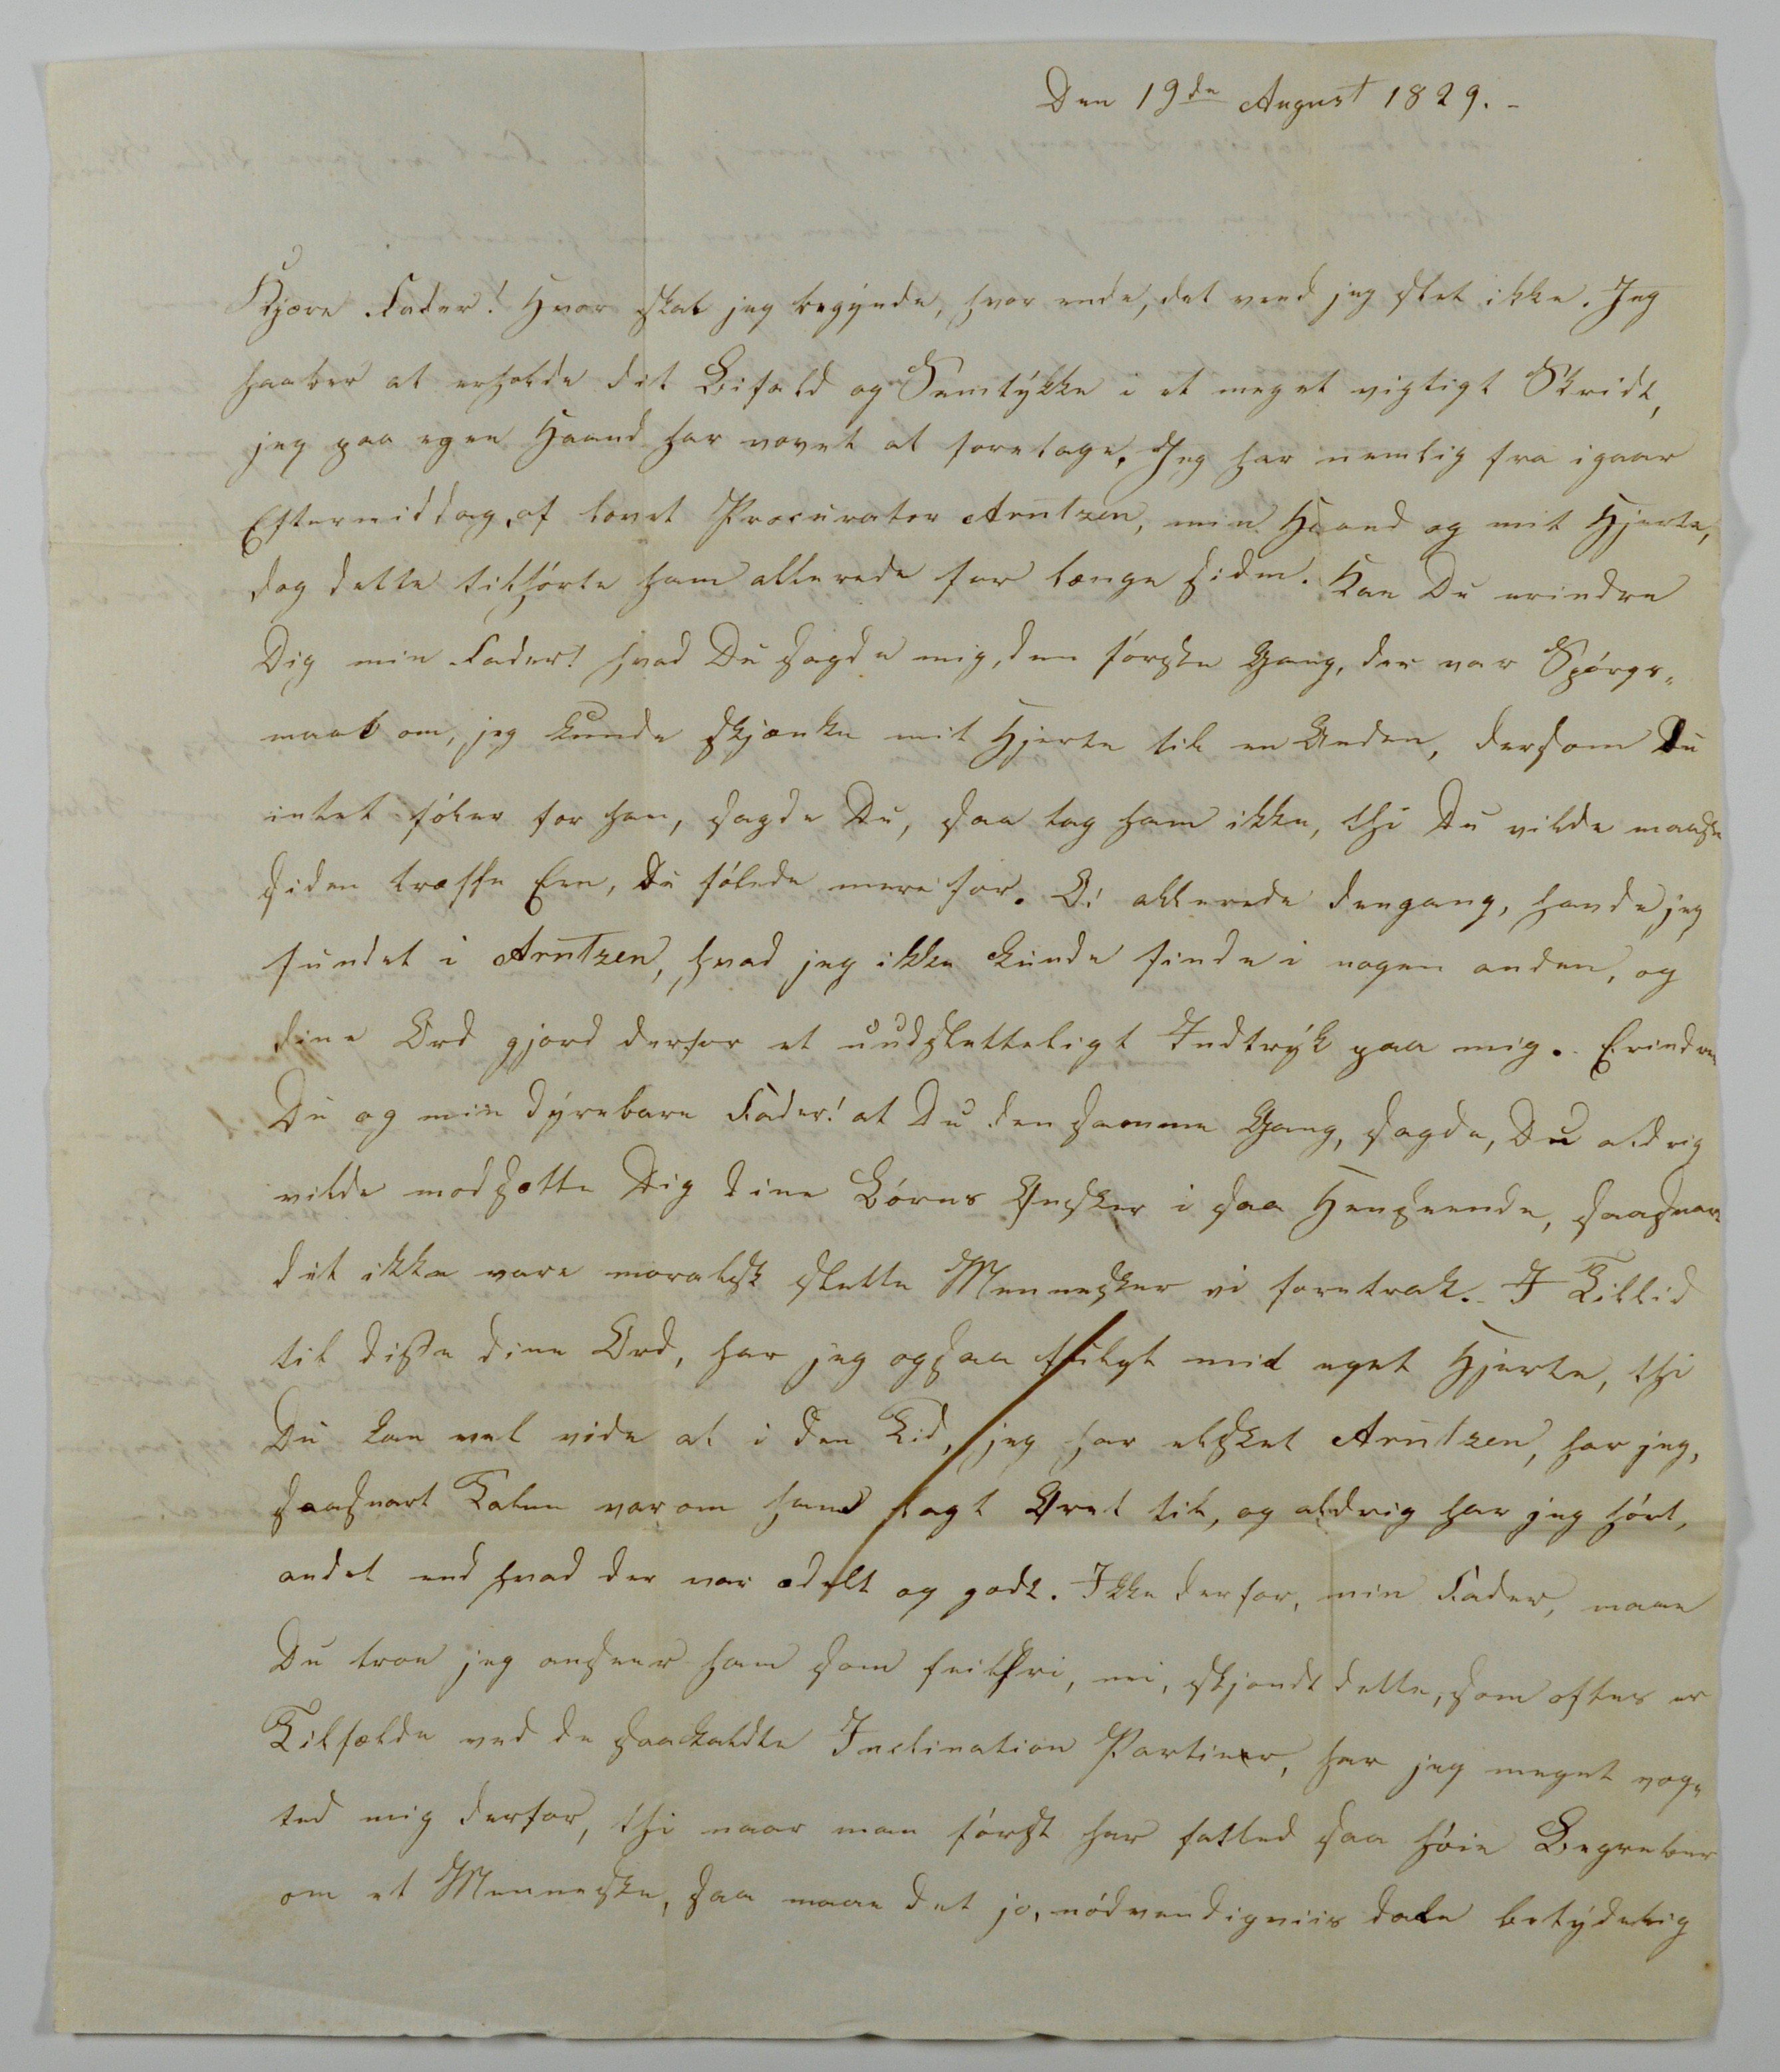 Den 19de August 1829.-
Kjære Fader! Hvor skal jeg begynde, hvor ende, det veed jeg slet ikke. Jeg
haaber at erholde dit Bifald og Samtykke i et meget vigtigt Skridt,
jeg paa egen Haand har vovet at foretage. Jeg har nemlig fra igaar
Eftermiddag, af lovet Procurator Arntzen, min Haand og mit Hjerte,
dog dette tilhørte ham allerede for længe siden. Kan Du erindre
Dig min Fader! hvad Du sagde mig, den første Gang, der var Spørgs„
maal om, jeg kunde skjænke mit Hjerte til en Anden, dersom Du
intet føler for han, sagde Du, saa tag ham ikke, thi Du vilde maaske
siden træffe Een, Du følede mere for. O! allerede dengang, havde jeg
fundet i Arntzen, hvad jeg ikke kunde finde i nogen anden, og
dine Ord gjord derfor et uudsletteligt Indtryk paa mig. Erindrer
Du og min dyrebare Fader! at Du den samme Gang, sagde, Du aldrig
vilde modsætte Dig dine Børns Ønsker i saa Henseende, saasnart
det ikke vare moralsk slette Mennesker vi foretrak. I Tillid
til disse dine Ord, har jeg ogsaa fulgt mit eget Hjerte, thi
Du kan vel vide at i den Tid, jeg har elsket Arntzen, har jeg,
saasnart Talen var om ham lagt Øret til, og aldrig har jeg hørt,
andet end hvad der var ædelt og godt. Ikke derfor, min Fader, maae
Du troe jeg anseer ham som feilfri, nei, skjøndt dette, som oftes er
Tilfælde ved de saakaldte Inclination Partier, har jeg meget vog„
ted mig derfor, thi naar man først har fatted saa høie Begreber
om et Menneske, saa maae det jo, nødvendigviis dale betydelig